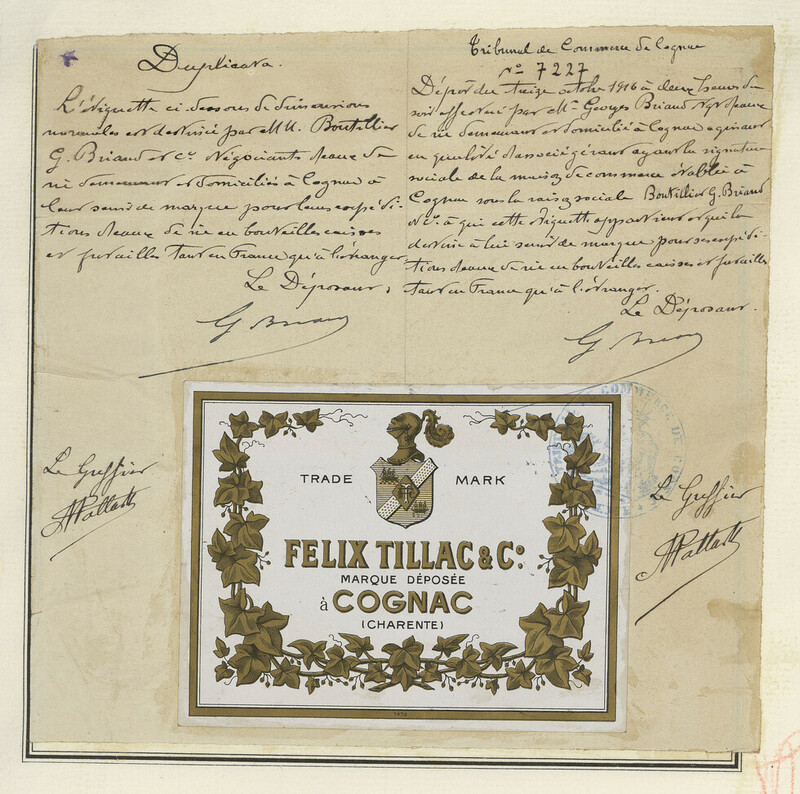 Duplicata.
L'étiquette ci-dessous de dimensions
normales est destinée par MM. Boutillier
G. Briand et Cie. Négociants deaux de
vie demeurant et domiciliés à Cognac à
leur servir de marque pour leurs expédi-
tions deaux de vie en bouteilles caisses
et futailles tant en France qu'à l'étranger
Le Déposant,
G Briand
Tribunal de Commerce de Cognac
No 7227
Dépôt du treize octobre 1916 à deux heures du
soir effectué par Mr Georges Briand Ngt deaux
de vie demeurant et domicilié à Cognac agissant
en qualité d'associé gérant ayant la signature
sociale de la maison de commerce établie à
Cognac sous la raison sociale Boutillier G. Briand
& Cie. à qui cette étiquette appartient et qui la
destine à lui servir de marque pour ses expédi-
tions deaux de vie en bouteilles caisses et futailles
tant en France qu'à l'étranger.
Le Déposant.
G Briand
Le Greffier
Le Greffier
TRADE MARK
FELIX TILLAC & Co.
MARQUE DÉPOSÉE
à COGNAC
(CHARENTE)